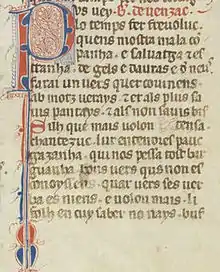 uey. G. de uenzac.
o temps fer freuoluc
quens mostra mala co
panha. e saluatga z es
tranha. de gels e dauras e o neu
farai un uers quer couinens
ab motz uerays. et als plus sa
uis pantays. et als non sauis bis
Silh que mais uolon
chantezuc. lur entendres pauc
gazanha. qui nos pessa tost bar
guanha. bons uers qus non es
conoyssens. quar uers ses uer
ya es niens. e uolon mais. li
folh en cuy saber no nays. buf